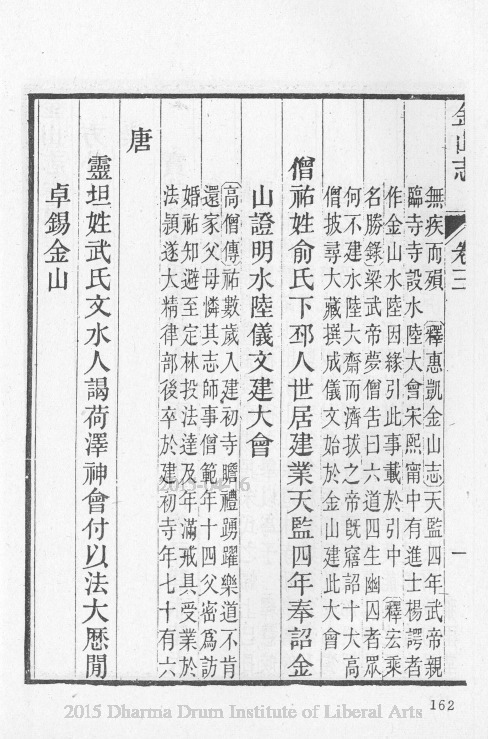 金山志 卷三 一
無疾而殞 釋惠凱金山志天監四年武帝親
臨寺寺設水陸大會宋熙甯中有進士楊諤者
作金山水陸因緣引此事載於引中 釋宏乘
名勝錄梁武帝夢僧告曰六道四生幽囚者眾
何不建水陸大齋而濟拔之帝旣寤詔十大高
僧披尋大藏撰成儀文始於金山建此大會
僧祐姓俞氏下邳人世居建業天監四年奉詔金
山證明水陸儀文建大會
高僧傳祐數歲入建初寺瞻禮踴躍樂道不肯
還家父母憐其志師事僧範年十四父密爲訪
婚祐知避至定林投法達及年滿戒具受業於
法頴遂大精律部後卒於建初寺年七十有六
唐
靈坦姓武氏文水人謁荷澤神會付以法大厯閒
卓錫金山
162
2015 Dharma Drum Institute of Liberal Arts